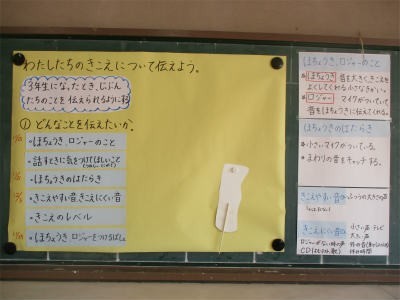 わたしたちのきこえについて伝えよう。
3年生になったとき、じぶん
たちのことを伝えられるように
① どんなことを伝えたいか。
・ほちょうき、ロジャーのこと
・話すときに気をつけてほしいこと
・ほちょうきのはたらき
・きこえやすい音、きこえにくい音
・きこえのレベル
・ほちょうき、ロジャーをつけるばしょ
ほちょうき、ロジャーのこと
ほちょうき 音を大きく、きこえを
よくしてくれる小さなきかい。
ロジャー マイクがついていて
音をほちょうきに伝えてくれる。
ほちょうきのはたらき
・小さいマイクがついている。
・まわりの音をキャッチする。
きこえやすい音 ふつうの大きさの声
きこえにくい音 小さい声 テレビ
大きい声